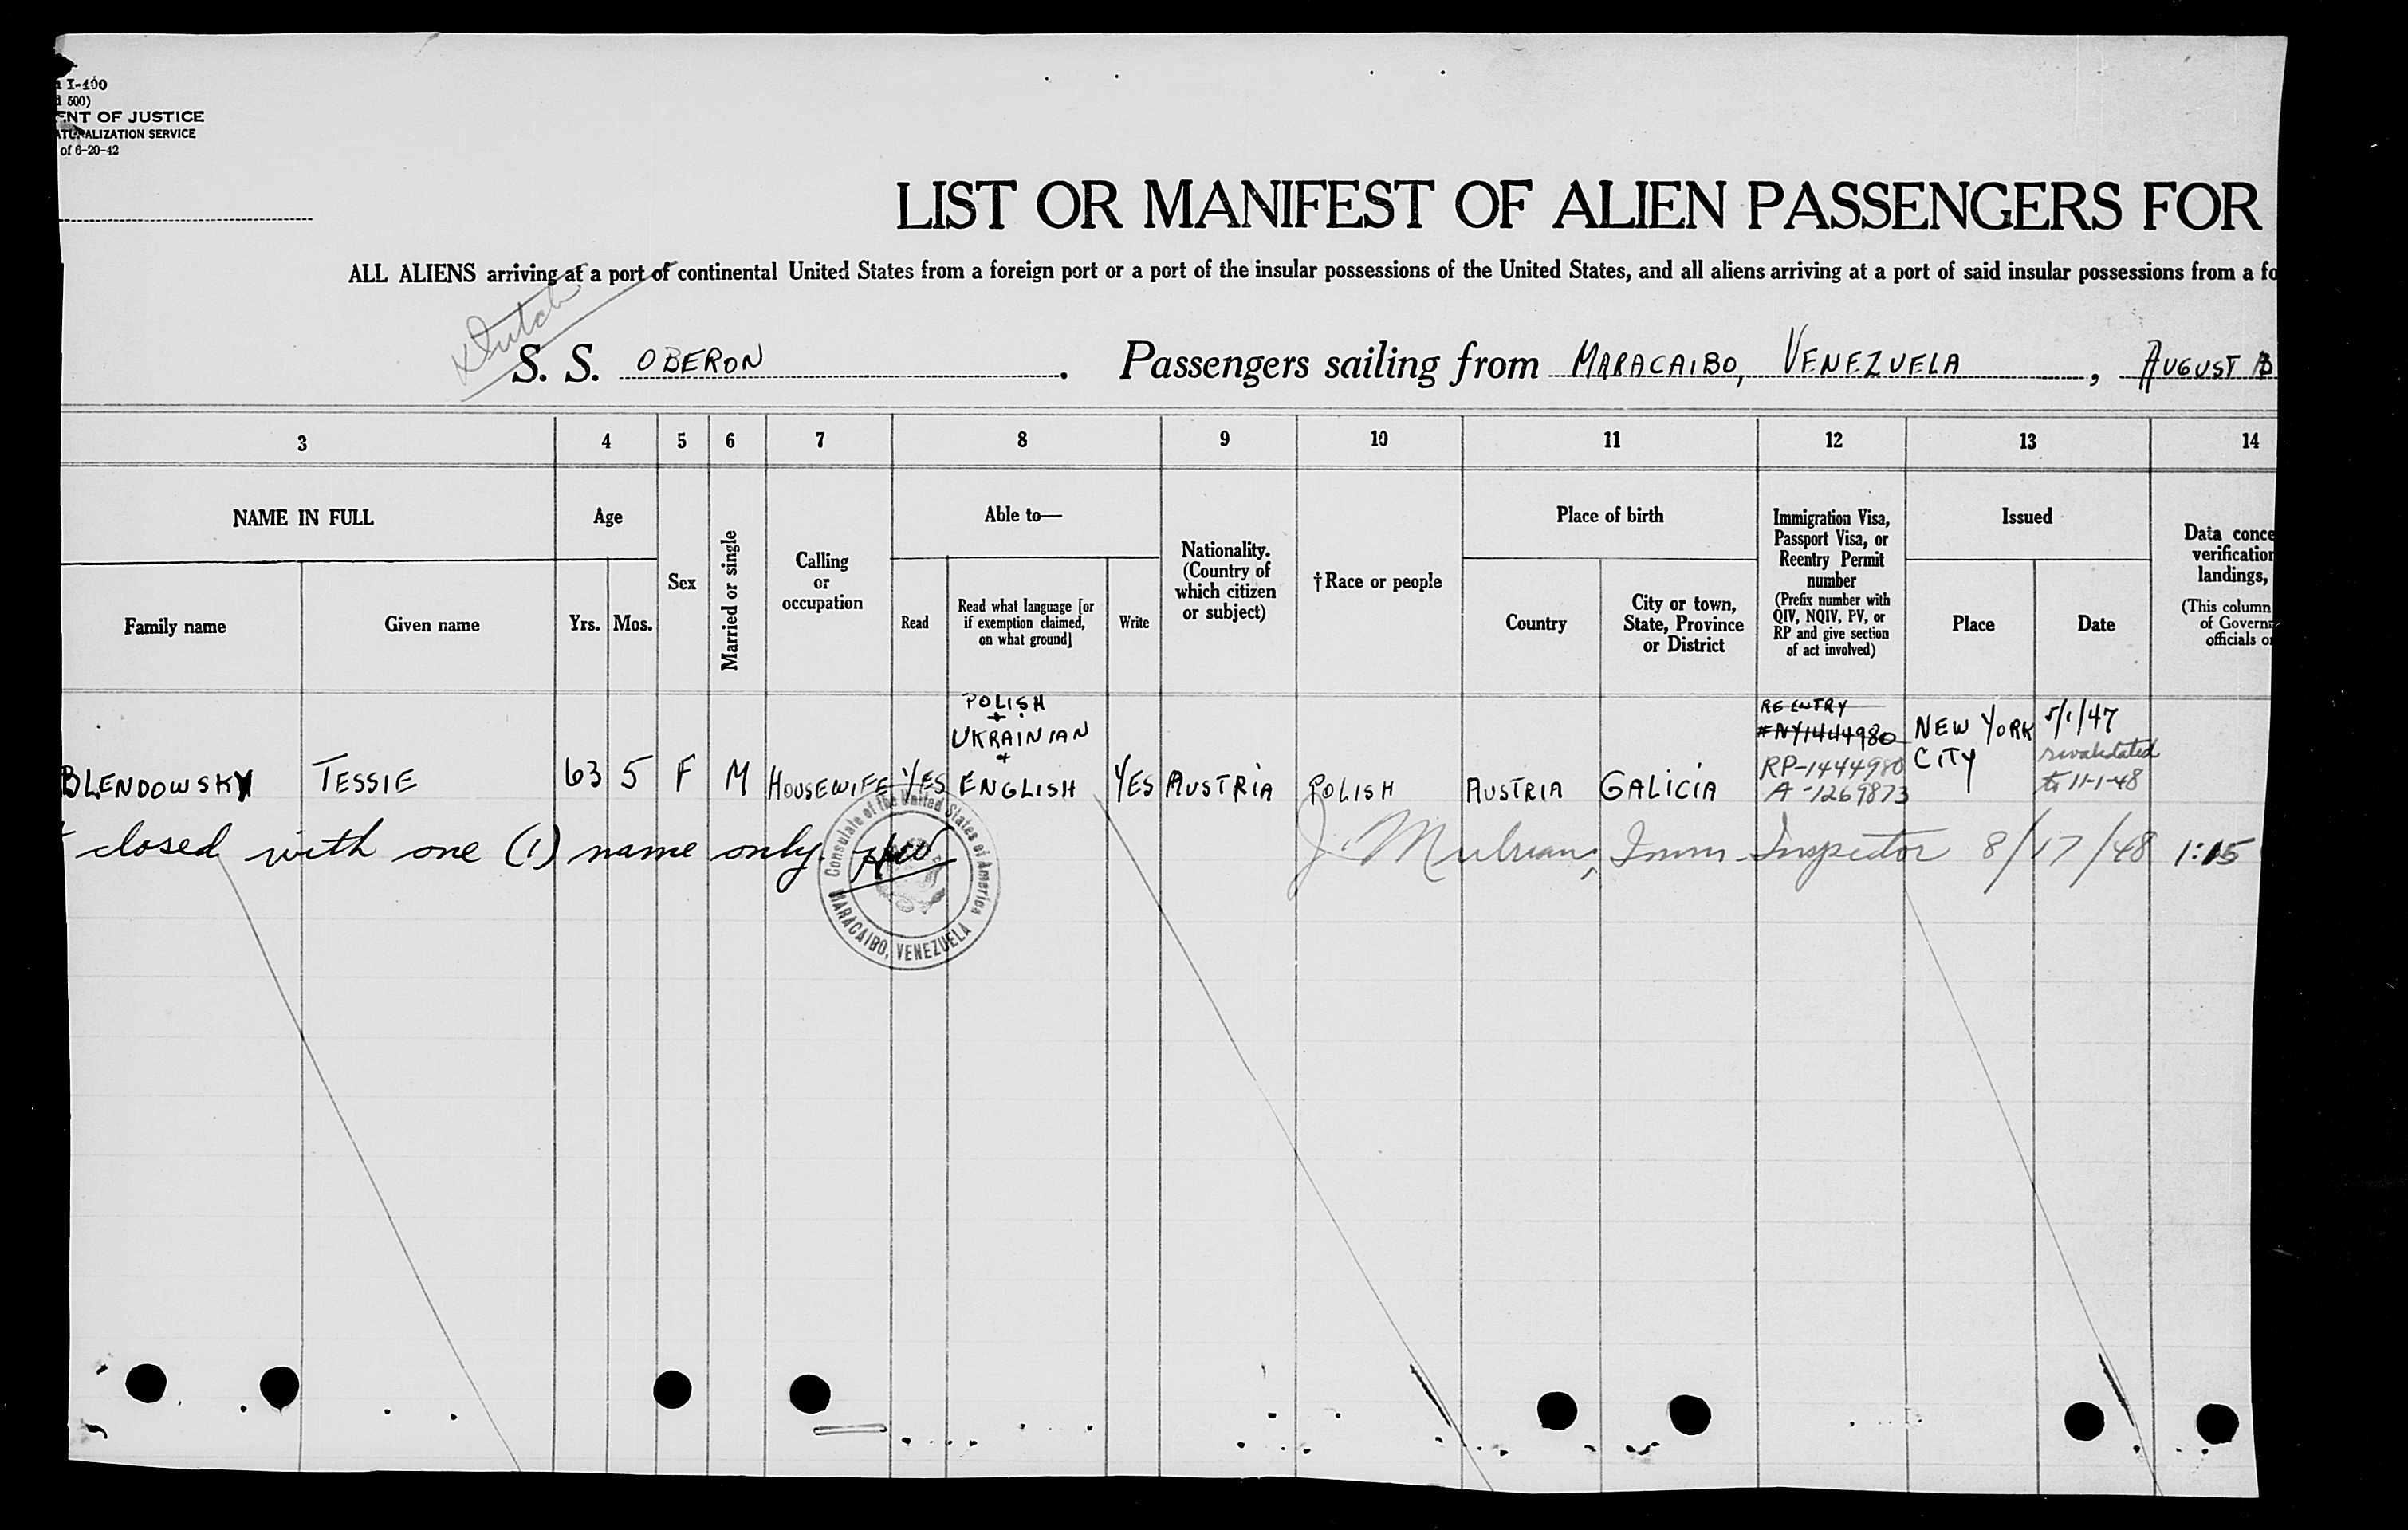 I-100
500)
ENT OF JUSTICE
ATURALIZATION SERVICE
of 6-20-42
LIST OR MANIFEST OF ALIEN PASSENGERS FOR
ALL ALIENS arriving at a port of continental United States from a foreign port or a port of the insular possessions of the United States, and all aliens arriving at a port of said insular possessions from a fo
x Dutch
S. S. OBERON. Passengers sailing from MARACAIBO, VENEZUELA, AUGUST
3 4 5 6 7 8 9 10 11 12 13 14
NAME IN FULL
Family name
Given name
Age
Yrs. Mos.
Sex
Married or single
Calling
or
occupation
Able to—
Read
Read what language [or
if exemption claimed,
on what ground]
Write
Nationality.
(Country of
which citizen
or subject)
†Race or people
Place of birth
Country
City or town,
State, Province
or District
Immigration Visa,
Passport Visa, or
Reentry Permit
number
(Prefix number with
QIV, NQIV, PV, or
RP and give section
of act involved)
Issued
Place
Date
Data conce
verification
landings,
(This column
of Govern
officials o
BLENDOWSKY TESSIE 63 5 F M HOUSEWIFE YES
POLISH
+
UKRAINIAN
+
ENGLISH
YES AUSTRIA POLISH AUSTRIA GALICIA
REENTRY
#NY1444980
RP-1444980
A-1269873
NEW YORK
CITY
5/1/47
revalidated
to 11-1-48
closed with one (1) name only.
Imm. Inspector 8/17/48 1:15
Consulate of the United States of America
MARACAIBO, VENEZUELA